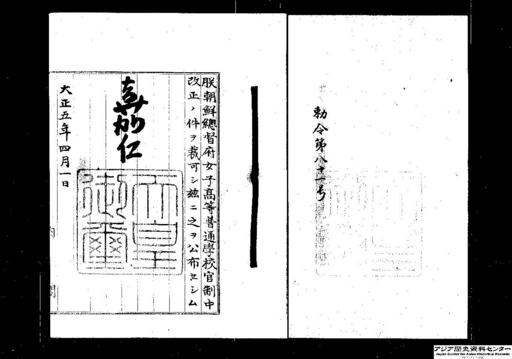 勅令第八十一号
朕朝鮮總督府女子高等普通學校官制中
改正ノ件ヲ裁可シ茲ニ之ヲ公布セシム
嘉仁
天皇
御璽
大正五年四月一日
アジア歴史資料センター
Japan Center for Asian Historical Records